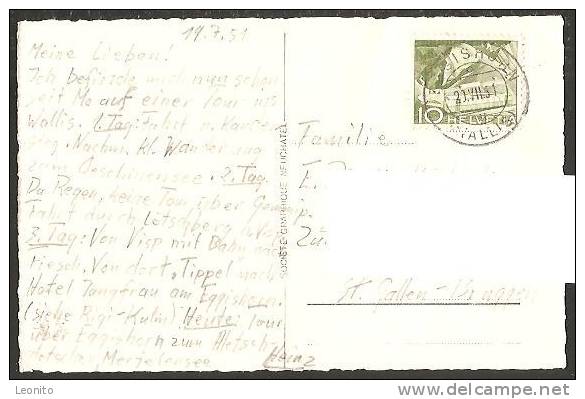 19.7.51
Meine Lieben!
Ich befinde mich nun schon
seit Mo auf einer Tour ins
Wallis. 1. Tag: Fahrt n. Kander-
steg. Nachm. kl. Wanderung
zum Oeschinensee. 2. Tag.
Da Regen, keine Tour über Gemmip.
Fahrt durch Lötschberg n. Visp
3. Tag: Von Visp mit Bahn nach
Fiesch. Von dort "Tippel" nach
Hotel Jungfrau am Eggishorn.
(siehe Rigi-Kulm) Heute: Tour
über Eggishorn zum Aletsch-
Merjelensee
Heinz
SOCIÉTÉ GRAPHIQUE NEUCHÂTEL
20.VII.51
(WALLIS)
10 HELVETIA
Familie
E.
Zü
St. Gallen-Bruggen
Leonito
www.delcampe.net